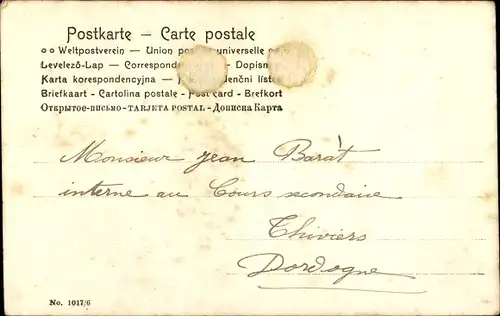 Postkarte — Carte postale
Weltpostverein — Union postale universelle
Levelező-Lap — Correspondenz - Dopisnice
Karta korespondencyjna — Korespondenční lístek
Briefkaart - Cartolina postale - Post card - Brefkort
Открытое-письмо - TARJETA POSTAL - Дописна Карта
Monsieur Jean Barat
interne au Cours secondaire
Thiviers
Dordogne
No. 1017/6